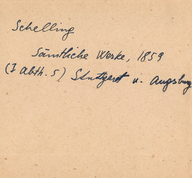 Schelling
Sämtliche Werke, 1859
(I Abth. 5) Stuttgart u. Augsburg